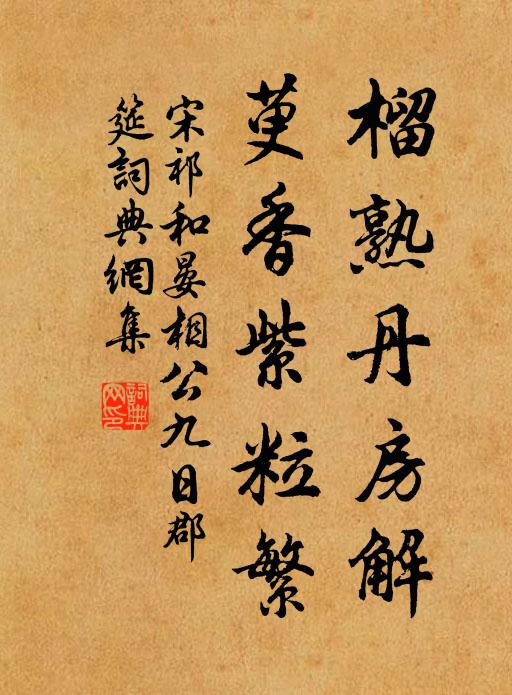 榴熟丹房解
萸香紫粒繁
宋祁和晏相公九日郡
筵詞典網集
詞典
网印